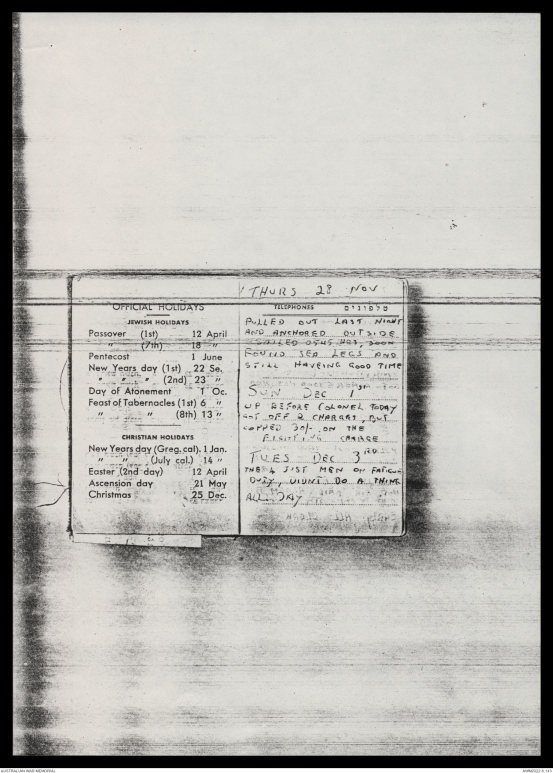 OFFICIAL HOLIDAYS
JEWISH HOLIDAYS
Passover (1st) 12 April
" (7th) 18 "
Pentecost 1 June
New Years day (1st) 22 Se.
" " " (2nd) 23 "
Day of Atonement 1 Oc.
Feast of Tabernacles (1st) 6 "
" " (8th) 13 "
CHRISTIAN HOLIDAYS
New Years day (Greg. cal). 1 Jan.
" " (July cal.) 14 "
Easter (2nd day) 12 April
Ascension day 21 May
Christmas 25 Dec.
THURS 28 NOV
TELEPHONES טלפונים
PULLED OUT LAST NIGHT
AND ANCHORED OUTSIDE
SAILED 0545 HRS, SOON
FOUND SEA LEGS AND
STILL HAVEING GOOD TIME
SUN DEC 1
UP BEFORE COLONEL TODAY
GOT OFF 2 CHARGES, BUT
COPPED 30/- ON THE
FIGHTING CHARGE
TUES DEC 3RD
THE 4 JIST MEN ON FATIGUE
DUTY, DIDNT DO A THING
ALL DAY
AUSTRALIAN WAR MEMORIAL